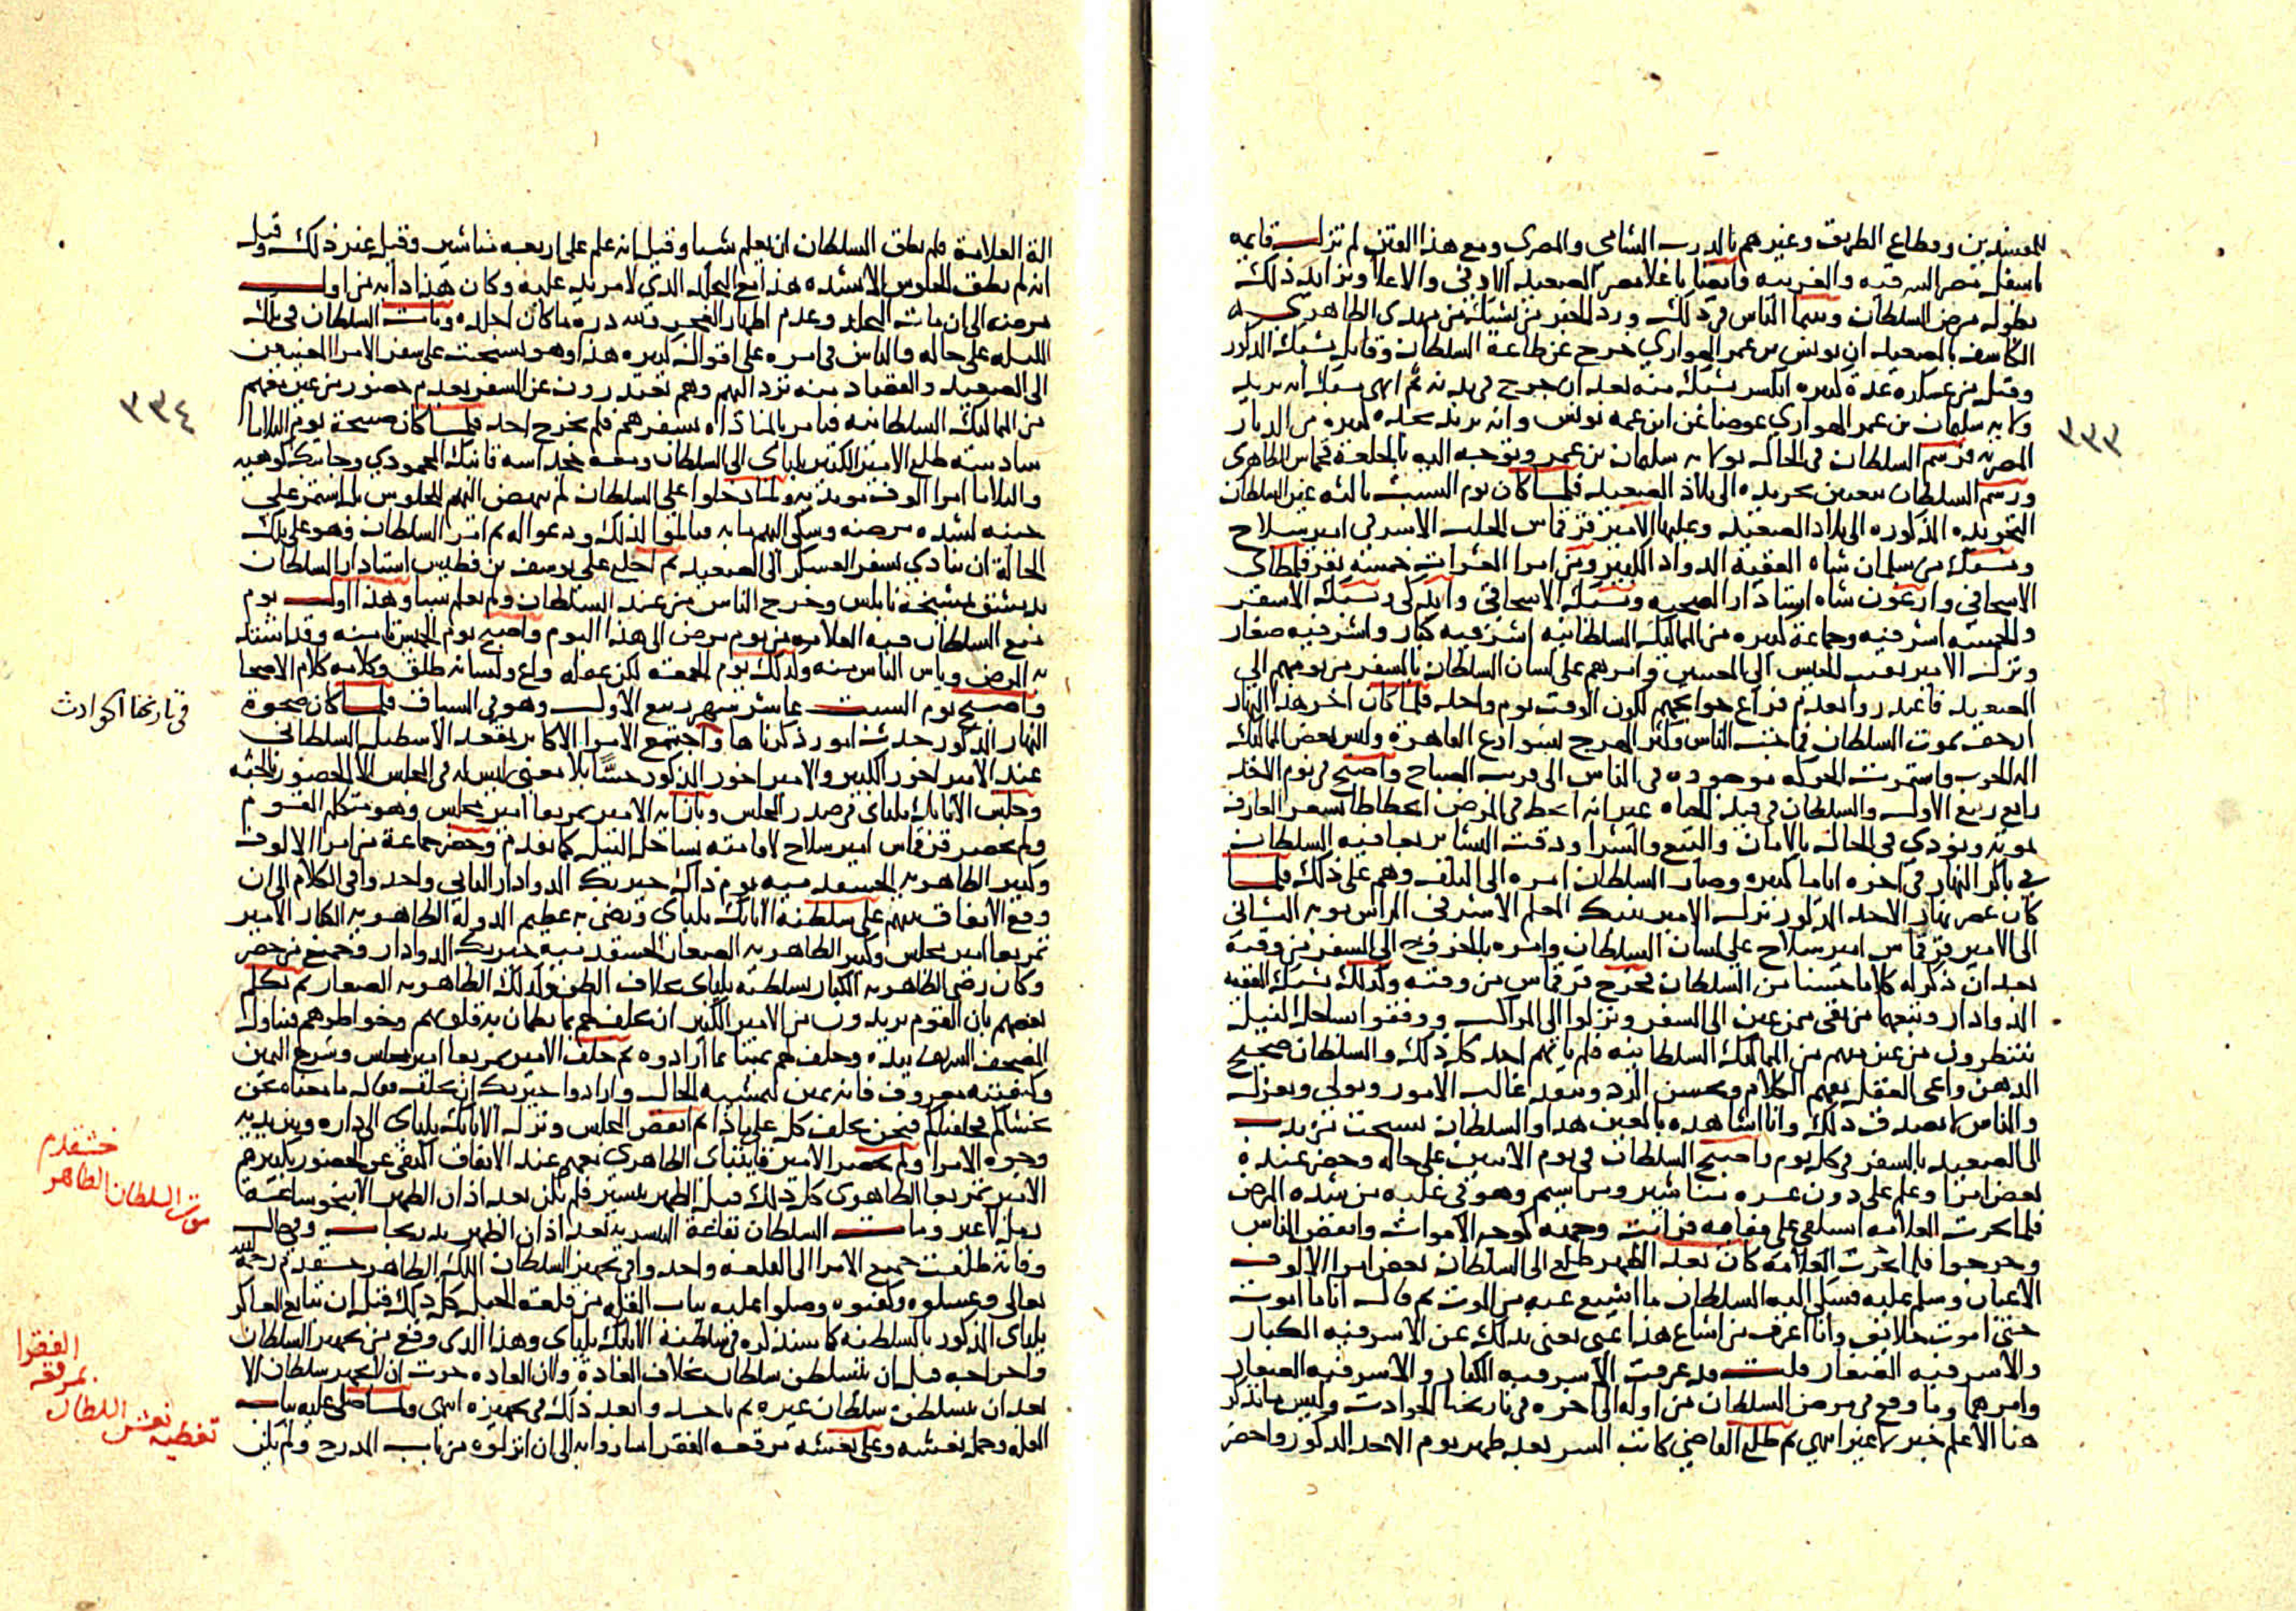 للمفسدين وقطاع الطريق وغيرهم بالدرب الشامي والمصري ومع هذا الفتن لم تزل قايمه
باسفل مصر الشرقيه والغربيه وايضا باعلا مصر الصعيد الادنى والاعلا وتزايد ذلك
بطول مرض السلطان وبينما الناس في ذلك ورد الخبر من يشبك من مهدي الظاهري
الكاشف بالصعيد ان يونس بن عمر الهواري خرج عن طاعة السلطان وقاتل يشبك المذكور
وقتل من عسكره عدة كبيره انكسر يشبك منه بعد ان جرح في بدنه ثم انهى يشبك انه يريد
ولايه سليمان بن عمر الهواري عوضا عن ابن عمه يونس وانه يريد نجده كبيرة من الديار
المصريه فرسم السلطان في الحال بولايه سليمان بن عمر وتوجه اليه بالخلعة قجماس الظاهري
ورسم السلطان بتعيين تجريده الى بلاد الصعيد فلما كان يوم السبت ثالثه عين السلطان
التجريده المذكوره الى بلاد الصعيد وعليها الامير قرقماس الجلب الاشرفي امير سلاح
ويشبك من سلمان شاه الفقيه الدوادار الكبير ومن امرا العشرات خمسة نفر قلمطاي
الاسحاقي وارغون شاه استادار الصحبه ويشبك الاسحاقي وايدكي ويشبك الاشقر
والخمسه اشرفيه وجماعة كبيره من المماليك السلطانيه اشرفيه كبار واشرفيه صغار
ونزل الامير نقيب الجيش الى المعينين وامرهم على لسان السلطان بالسفر من يومهم الى
الصعيد فاعتذروا بعدم فراغ حوايجهم لكون الوقت يوم واحد فلما كان اخر هذا النهار
ارجف بموت السلطان فماجت الناس وكثر الهرج بشوارع القاهرة ولبس بعض المماليك
اله الحرب واستمرت الحركه موجوده في الناس الى قريب الصباح واصبح في يوم الاحد
رابع ربيع الاول والسلطان في قيد الحياه غير انه انحط في المرض انحطاطا يشعر العارف
بموته ونودي في الحال بالامان والبيع والشرا ودقت البشاير بعافيه السلطان
في باكر النهار في اخره اياما كثيره وصار السلطان امره الى التلف وهم على ذلك فلما
كان عصر نهار الاحد المذكور نزل الامير تنبك المعلم الاشرفي الراس نوبه الثاني
الى الامير قرقماس امير سلاح على لسان السلطان وامره بالخروج الى السفر من وقته
بعد ان ذكر له كلاما حسنا من السلطان فخرج قرقماس من وقته وكذلك يشبك الفقيه
الدوادار وتبعهما من بقى ممن عين الى السفر ونزلوا الى المراكب ووقفوا بساحل النيل
ينتظرون من عين معهم من المماليك السلطانيه فلم ياتهم احد كل ذلك والسلطان صحيح
الذهن واعي العقل يفهم الكلام ويحسن الرد وينفذ غالب الامور ويولي ويعزل
والناس لا تصدق ذلك وانا اشاهده بالعين هذا والسلطان يستحث تزيد
الى الصعيد بالسفر في كل يوم واصبح السلطان في يوم الاثنين على حاله وحضر عنده
بعض امرا وعلم على دون عشره مناشير ومراسيم وهو في غلبه من شده المرض
فلما نجزت العلامه استلقى على قفاه فرايت وجهه كوجه الاموات وانفض الناس
وخرجوا فلما نجزت العلامه كان بعد الظهر طلع الى السلطان بعض امرا الالوف
الاعيان وسلم عليه فشكى اليه السلطان ما اشيع عنه من الموت ثم قال انا ما اموت
حتى اموت خلايق وانا اعرف من اشاع هذا عني يعني بذلك عن الاشرفيه الكبار
والاشرفيه الصغار قلت قد عرفت الاشرفيه الكبار والاشرفيه الصغار
وامرهما وما وقع في مرض السلطان من اوله الى اخره في تاريخنا الحوادث وليس ما نذكر
هنا الا علم خبر لا غير انتهى ثم طلع القاضي كاتب السر بعد ظهر يوم الاحد المذكور واحضر
٣٣٣
الة العلامة فلم يطق السلطان ان يعلم شيا وقيل انه علم على اربعه مناشير وقيل غير ذلك وقيل
انه لم يطق الجلوس الا بشده هذا مع التجلد الذي لا مزيد عليه وكان هذا دابه من اول
مرضه الى ان مات التجلد وعدم اظهار العجز لله دره ما كان اجلده وبات السلطان في تلك
الليله على حاله والناس في امره على اقوال كثيره هذا وهو يستحث على سفر الامرا المعينين
الى الصعيد والقصاد منه ترد اليهم وهم يعتذرون عن السفر بعدم حضور من عين معهم
من المماليك السلطانيه فنامر بالمناداه بسفرهم فلم يخرج احد فلما كان صبيحة يوم الثلاثا
سادسه طلع الامير الكبير يلباي الى السلطان ومعه خجداشه قانبك المحمودي وجانبك كوهيه
والثلاثا امرا الوف مويديه ولما دخلوا على السلطان لم ينهض اليهم للجلوس بل استمر على
جنبه لشده مرضه وشكى اليهم ما به فتالموا لذلك ودعوا له ثم امر السلطان وهو على تلك
الحالة ان ينادي بسفر العسكر الى الصعيد ثم اخلع على يوسف بن فطيس استادار السلطان
بدمشق بمشيخة نابلس وخرج الناس من عند السلطان ولم يعلم شيا وهذا اول يوم
منع السلطان فيه العلامه من يوم مرض الى هذا اليوم واصبح يوم الخميس ثامنه وقد اشتد
به المرض ويئس الناس منه وكذلك يوم الجمعه لكن عقله واع ولسانه طلق وكلامه كلام الاصحا
واصبح يوم السبت عاشر شهر ربيع الاول وهو في السياق فلما كان ضحوة
النهار المذكور حدث امور ذكرناها واجتمع الامرا الاكابر بمقعد الاسطبل السلطاني
عند الامير اخور الكبير والامير اخور المذكور حسا بلا معنى ليس له في المجلس الا الحضور بالجثه
وجلس الاتابك يلباي في صدر المجلس وبازايه الامير تمربغا امير مجلس وهو متكلم القوم
ولم يحضر قرقماس امير سلاح لاقامته بساحل النيل كما تقدم وحضر جماعة من امرا الالوف
وكبير الظاهريه الخشقدميه يوم ذاك خيربك الدوادار الثاني واخذوا في الكلام الى ان
وقع الاتفاق بينهم على سلطنه الاتابك يلباي ورضي به عظيم الدوله الظاهريه الكبار الامير
تمربغا امير مجلس وكبير الظاهريه الصغار الخشقدميه خيربك الدوادار وجميع من حضر
وكان رضى الظاهريه الكبار بسلطنه يلباي بخلاف الظن وكذلك الظاهريه الصغار ثم تكلم
بعضهم بان القوم يريدون من الامير الكبير ان يحلف لهم بما تطمان به قلوبهم وخواطرهم فتناول
المصحف الشريف بيده وحلف لهم يمينا بما ارادوه ثم حلف الامير تمربغا امير مجلس وشرح اليمين
وكيفيته معروف فانه يمين لمشيه الحال وارادوا خيربك ان يحلف فقال ما معناه نحن
نخشاكم فحلفناكم فنحن نحلف كله على ماذا ثم انفض المجلس ونزل الاتابك يلباي الى داره وبين يديه
وجوه الامرا ولم يحضر الامير قايتباي الظاهري معهم عند الاتفاق اكتفى عن الحضور بكبيرهم
الامير تمربغا الظاهري كل ذلك قبل الظهر بيسير فلم يكن بعد اذان الظهر الا بنحو ساعة
رمل لا غير ومات السلطان بقاعة البيسريه بعد اذان الظهر بدرجات وفي حال
وفاته طلعت جميع الامرا الى القلعه واخذوا في تجهيز السلطان الملك الظاهر خشقدم رحمه الله
تعالى وغسلوه وكفنوه وصلوا عليه بباب القله من قلعة الجبل كل ذلك قبل ان يبايع العساكر
يلباي المذكور بالسلطنه كما سنذكره في سلطنه الاتابك يلباي وهذا الذي وقع من تجهيز السلطان
واخراجه قبل ان يتسلطن سلطان بخلاف العادة ولان العاده جرت ان لا يجهز سلطان الا
بعد ان يتسلطن سلطان غيره ثم ياخذ وابعد ذلك في تجهيزه انتهى ولما صلى عليه بباب
القله وحمل نعشه وعلى نعشه مرقعه الفقرا ساروا به الى ان انزلوه من باب المدرج ولم يكن
٣٣٤
في تاريخنا الحوادث
خشقدم
موت السلطان الظاهر
الفقرا
بمرقعه
تغطيه نعش السلطان